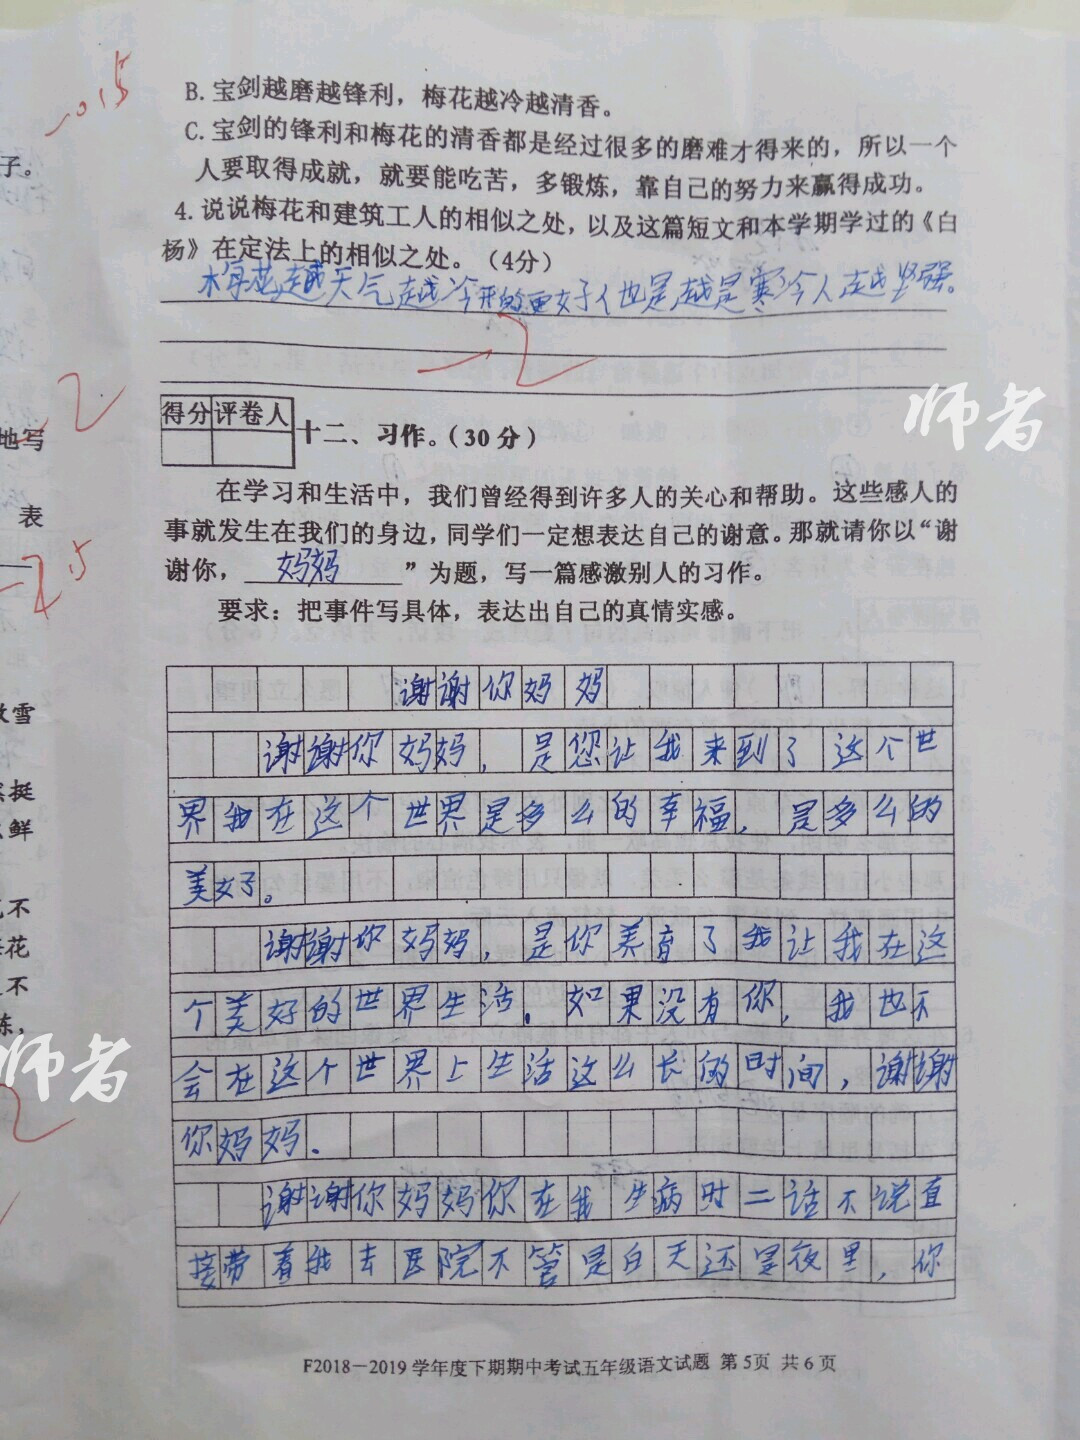 B. 宝剑越磨越锋利，梅花越冷越清香。
C. 宝剑的锋利和梅花的清香都是经过很多的磨难才得来的，所以一个
人要取得成就，就要能吃苦，多锻炼，靠自己的努力来赢得成功。
4. 说说梅花和建筑工人的相似之处，以及这篇短文和本学期学过的《白
杨》在定法上的相似之处。（4分）
梅花越天气越冷开的更好人也是越是寒冷人越坚强。
-2
得分 评卷人
十二、习作。（30分）
在学习和生活中，我们曾经得到许多人的关心和帮助。这些感人的
事就发生在我们的身边，同学们一定想表达自己的谢意。那就请你以“谢
谢你，妈妈”为题，写一篇感激别人的习作。
要求：把事件写具体，表达出自己的真情实感。
谢谢你妈妈
谢谢你妈妈，是您让我来到了这个世
界我在这个世界是多么的幸福，是多么的
美好。
谢谢你妈妈，是你养育了我让我在这
个美好的世界生活。如果没有你，我也不
会在这个世界上生活这么长的时间，谢谢
你妈妈.
谢谢你妈妈你在我生病时二话不说直
接带着我去医院不管是白天还是夜里，你
F2018－2019学年度下期期中考试五年级语文试题 第5页 共6页
子。
地写
表
雪
挺
鲜
不
花
不
师者
师者